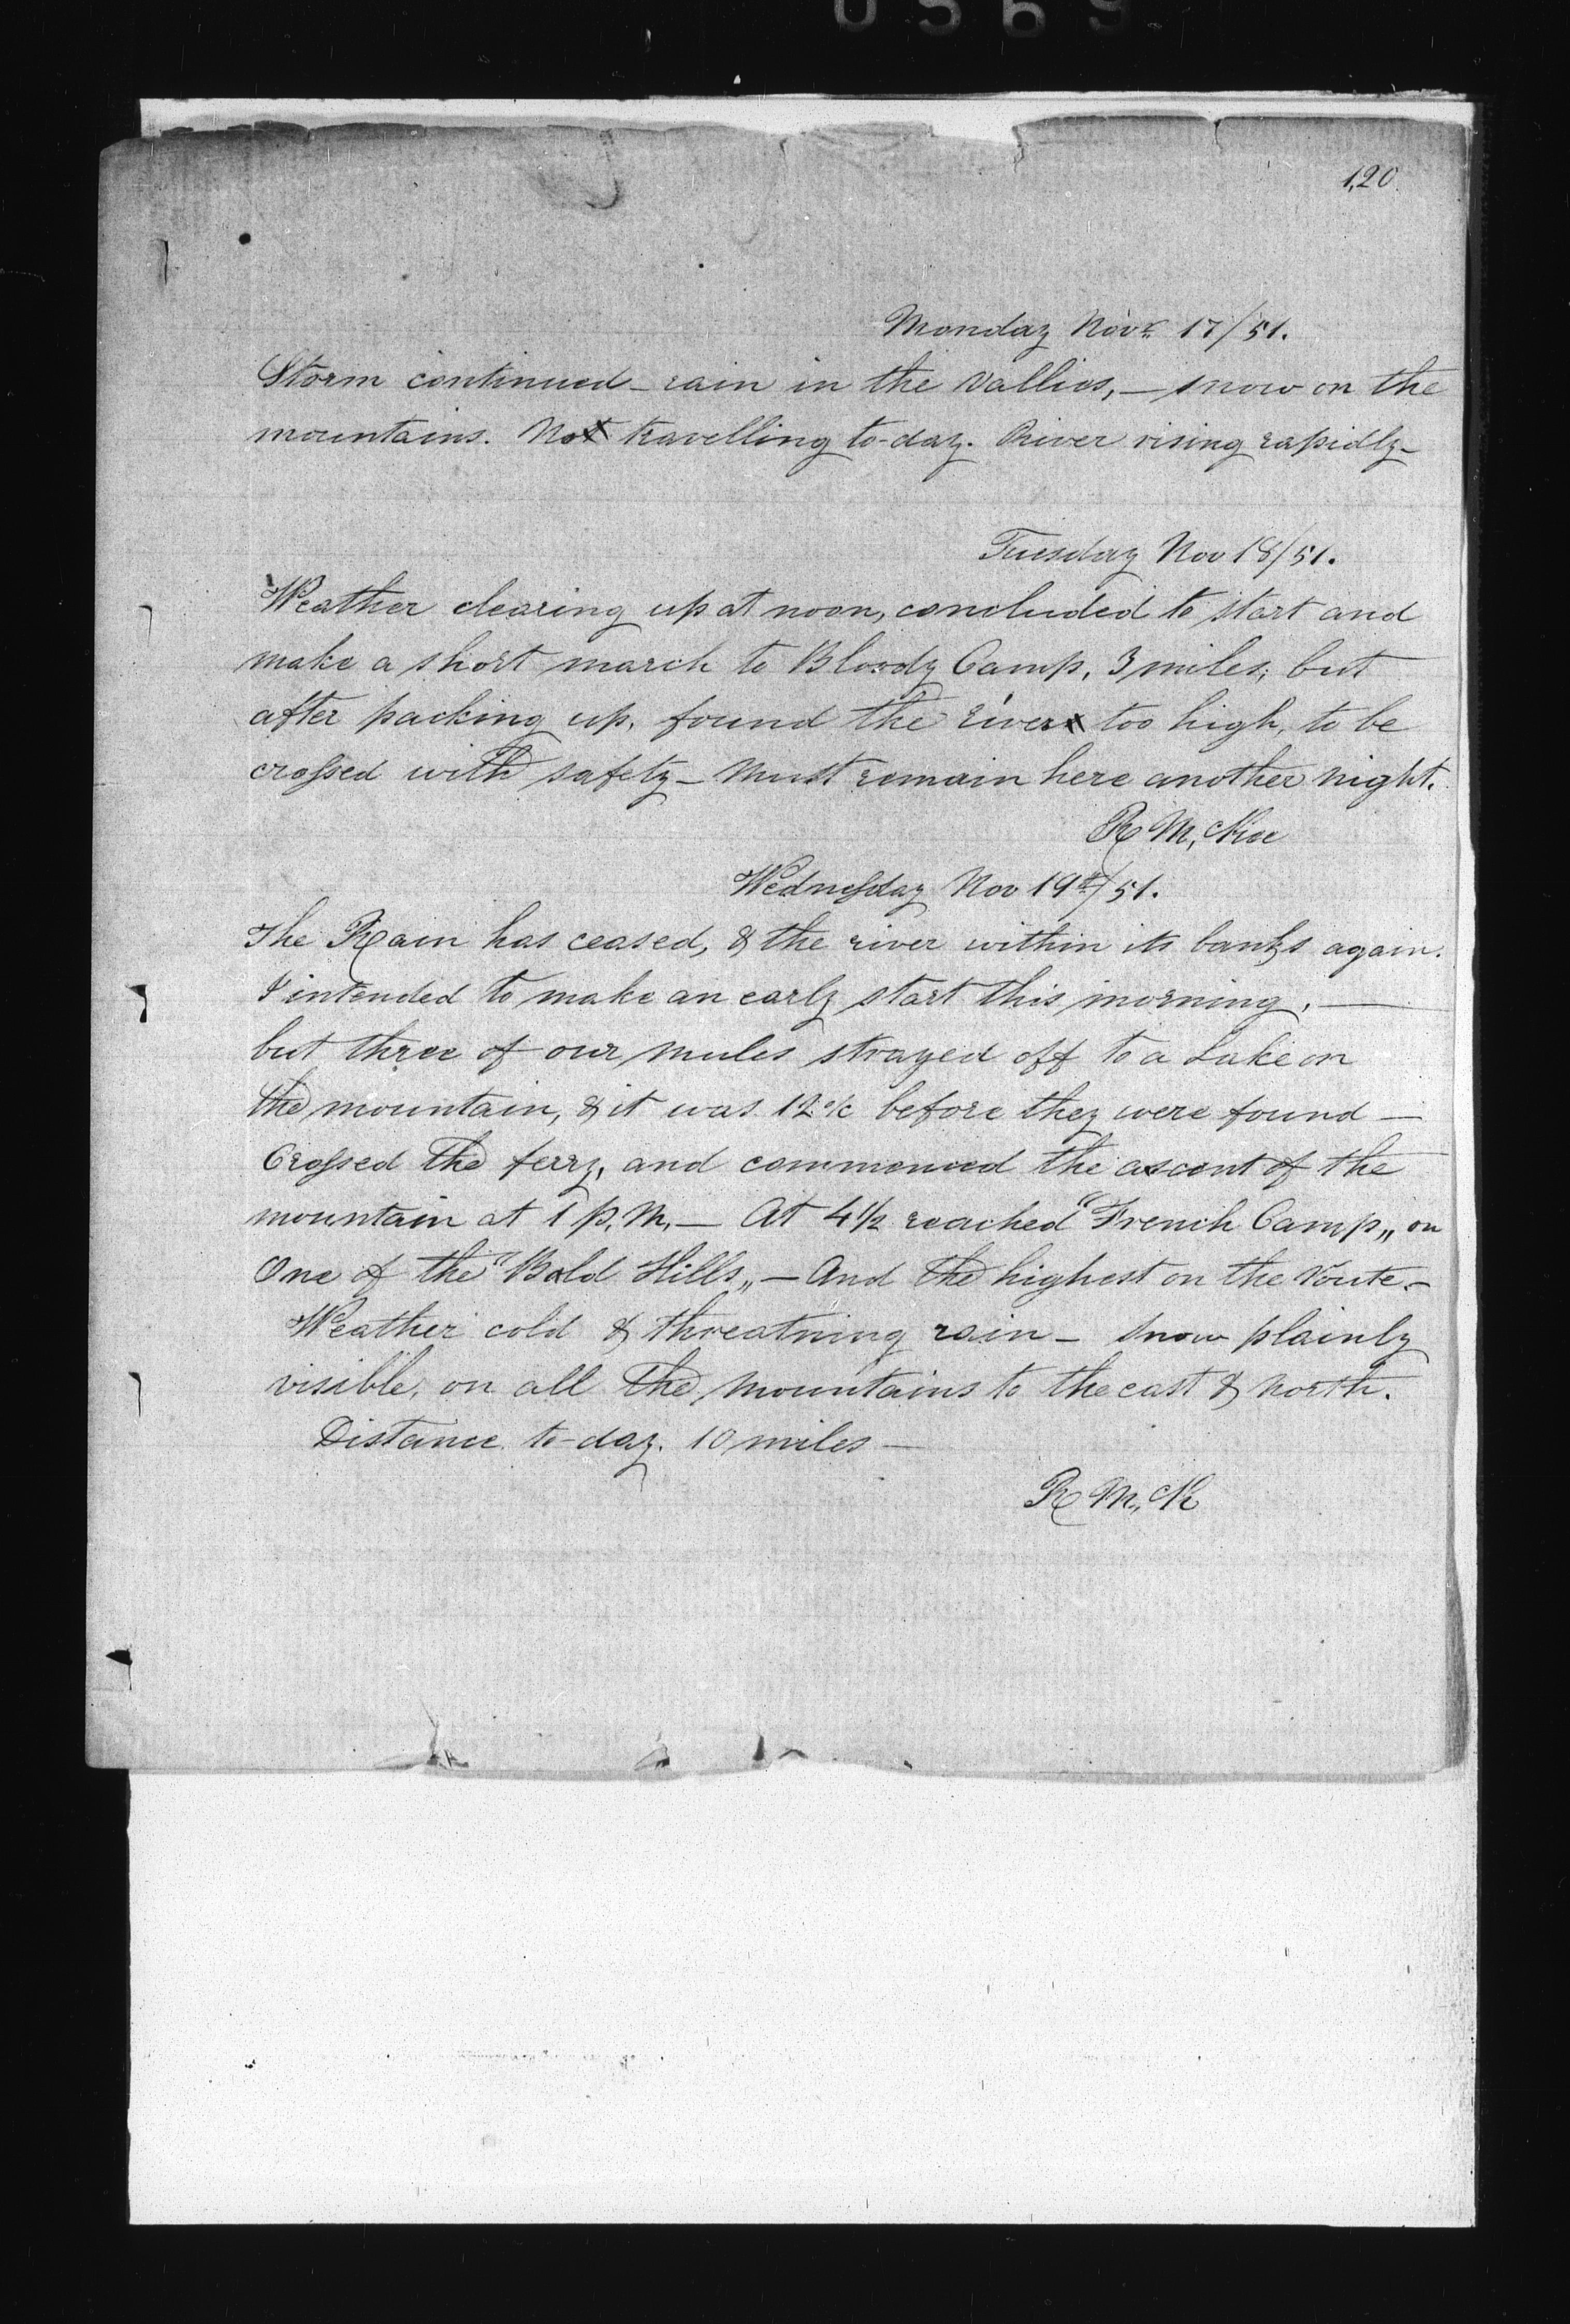 0569
120
Monday Novr 17/51.
Storm continued – rain in the vallies, – snow on the
mountains. No travelling to-day. River rising rapidly –
Tuesday Nov 18/51.
Weather clearing up at noon, concluded to start and
make a short march to Bloody Camp, 3 miles; but
after packing up, found the river too high, to be
crossed with safety – must remain here another night.
R McKee
Wednesday Nov 19th/51.
The Rain has ceased, & the river within its banks again.
I intended to make an early start this morning, —
but three of our mules strayed off to a Lake on
the mountain, & it was 12 o/c before they were found –
Crossed the ferry, and commenced the ascent of the
mountain at 1 p.m. – At 4 1/2 reached "French Camp„ on
One of the "Bald Hills„ – And the highest on the route. –
Weather cold & threatning rain – snow plainly
visible, on all the mountains to the east & north.
Distance to-day. 10 miles –
R McK